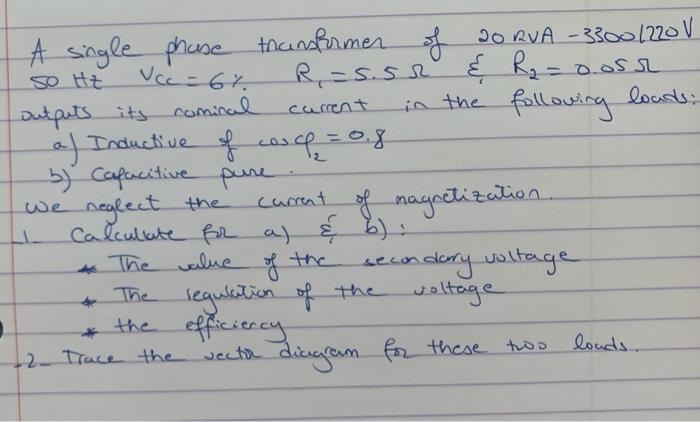 A single phase transformer of 20 kVA - 3300/220V
50 Hz Vcc = 6% R₁ = 5.5 Ω & R₂ = 0.05 Ω
outputs its nominal current in the following loads:
a) Inductive of cosφ₂ = 0.8
b) Capacitive pure.
We neglect the current of magnetization.
1- Calculate for a) & b) :
* The value of the secondary voltage
* The regulation of the voltage
* the efficiency
-2- Trace the vector diagram for these two loads.